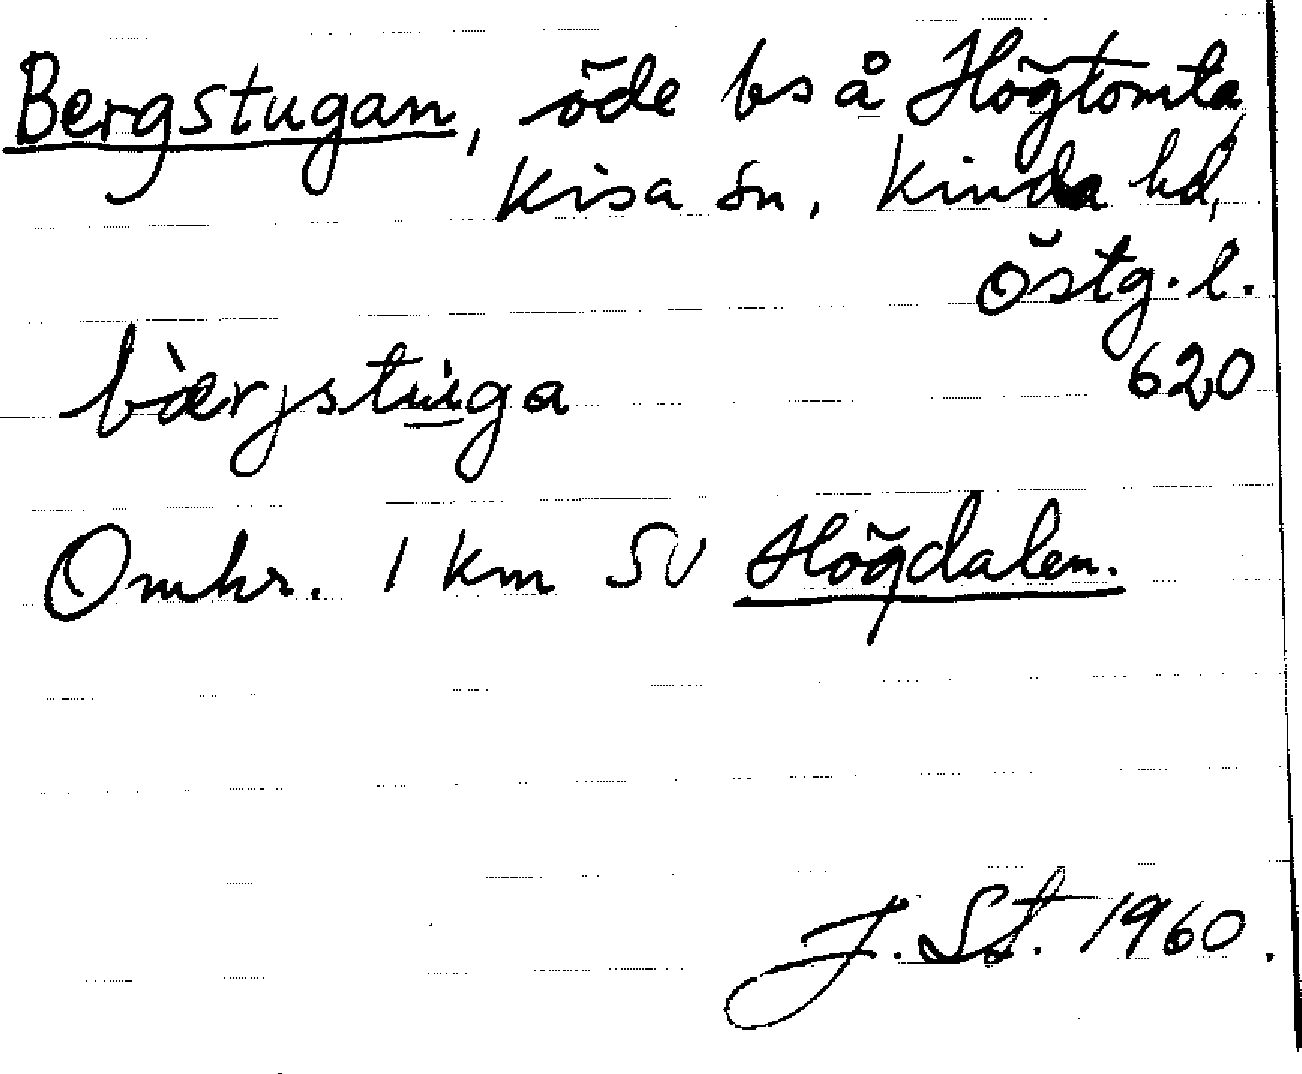 Bergstugan, öde bs å Högtomta,
Kisa sn, Kinda hd,
Östg. l.
620
bàrjstu̲ga
Omkr. 1 km SV Högdalen.
J. St. 1960.